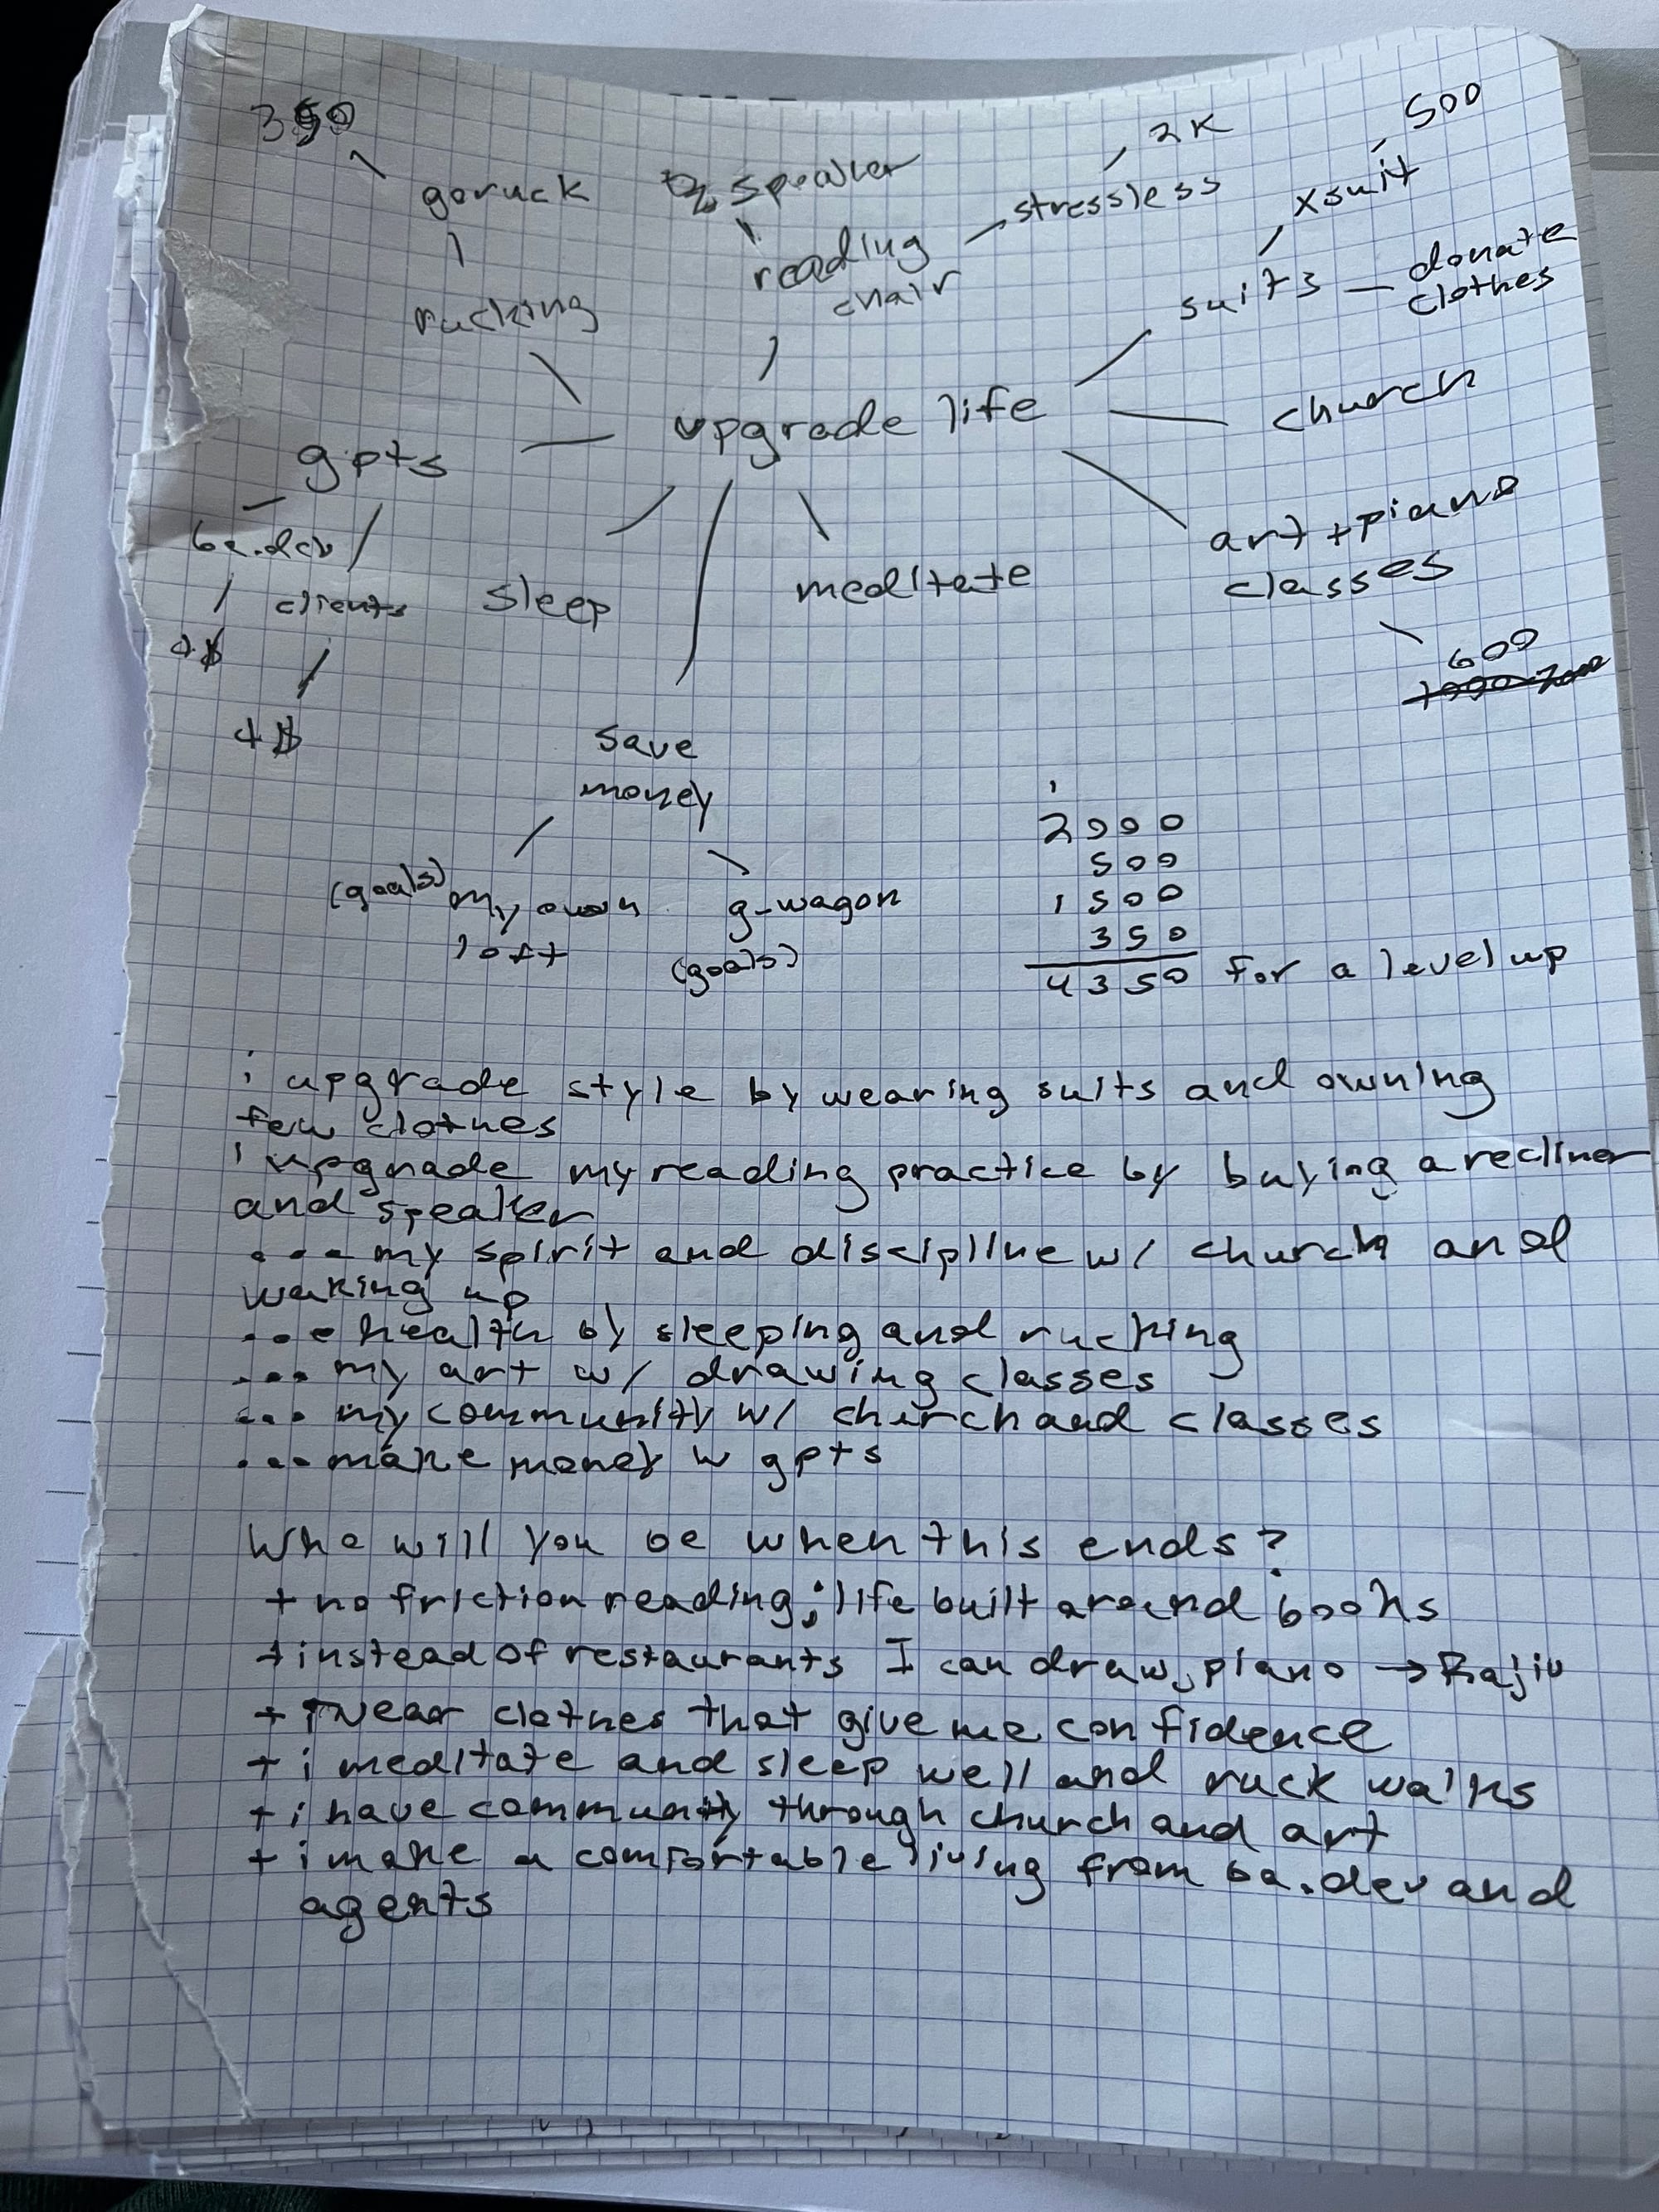 350
goruck
rucking
speaker
reading
chair
stressless
2K
500
xsuit
suits
donate
clothes
upgrade life
church
art + piano
classes
600
gpts
6a.dev
clients
+$
+$
sleep
meditate
save
money
(goals) my own
loft
g-wagon
(goals)
1
2000
500
1500
350
4350 for a level up
i upgrade style by wearing suits and owning
few clothes
i upgrade my reading practice by buying a recliner
and speaker
... my spirit and discipline w/ church and
waking up
... health by sleeping and rucking
... my art w/ drawing classes
... my community w/ church and classes
... make money w gpts
Who will you be when this ends?
+ no friction reading; life built around books
+ instead of restaurants I can draw, piano → Rajiv
+ i wear clothes that give me confidence
+ i meditate and sleep well and ruck walks
+ i have community through church and art
+ i make a comfortable living from 6a.dev and
agents